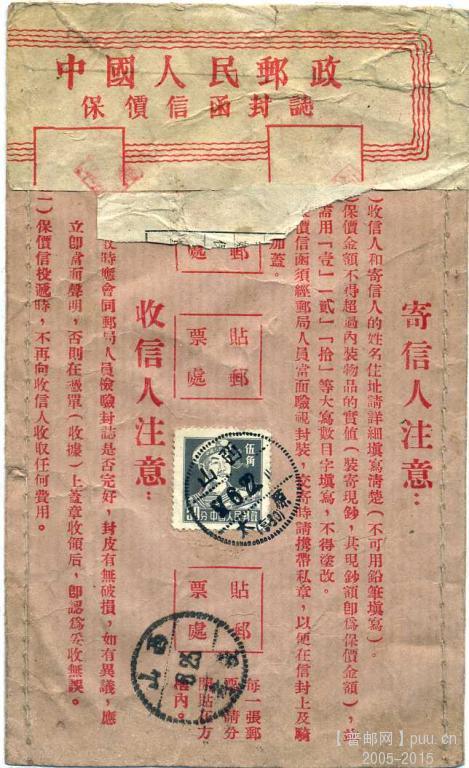 中國人民郵政
保價信函封誌
寄信人注意：
)收信人和寄信人的姓名住址請詳細填寫清楚(不可用鉛筆填寫)。
保價金額不得超過內裝物品的實値(裝寄現鈔，其現鈔額即爲保價金額)，並
需用「壹」「貳」「拾」等大寫數目字填寫，不得塗改。
價信函須經郵局人員當面驗視封裝，交寄時請攜帶私章，以便在信封上及騎
加蓋。
郵
處
貼郵
票處
貼郵
票處
每一張郵
票請分
開貼在方
格內。
收信人注意：
時應會同郵局人員檢驗封誌是否完好，封皮有無破損，如有異議，應
立即當面聲明，否則在憑單(收據)上蓋章收領后，即認爲妥收無誤。
)保價信投遞時，不再向收信人收取任何費用。
伍角
分中國人民郵政
山西
太原
山西
6.25
【普邮网】puu.cn
2005-2015